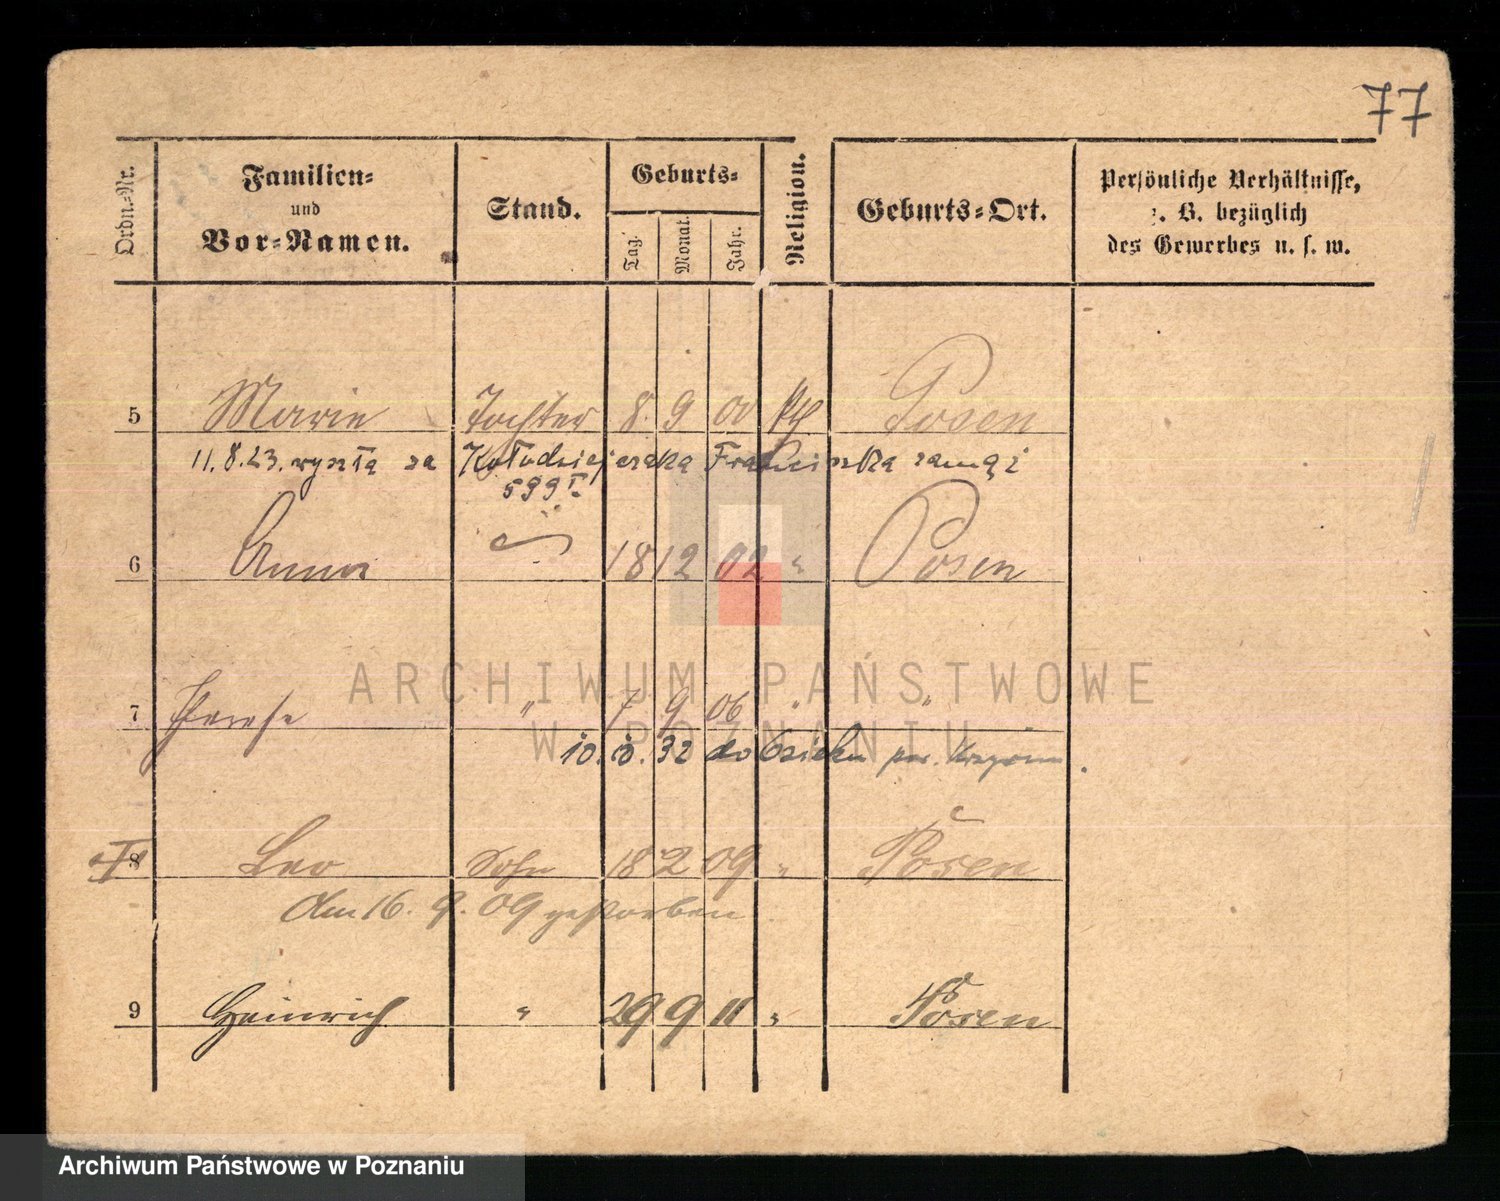 77
Ordn.-Nr.
Familien-
und
Vor-Namen.
Stand.
Geburts-
Tag.
Monat.
Jahr.
Religion.
Geburts-Ort.
Persönliche Verhältnisse,
z. B. bezüglich
des Gewerbes u. s. w.
5 Marie Tochter 8. 9 00 kth Posen
11.8.23. wyszła za Kołodziejczaka Franciszka zamąż
599 I
6 Anna 18 12 02 " Posen
7 Therese " 7 9 06 " "
10. 32 do pow.
8 Leo Sohn 18 2 09 " Posen
Am 16. 9. 09 gestorben
9 Heinrich " 29 9 11 " Posen
ARCHIWUM PAŃSTWOWE
W POZNANIU
Archiwum Państwowe w Poznaniu